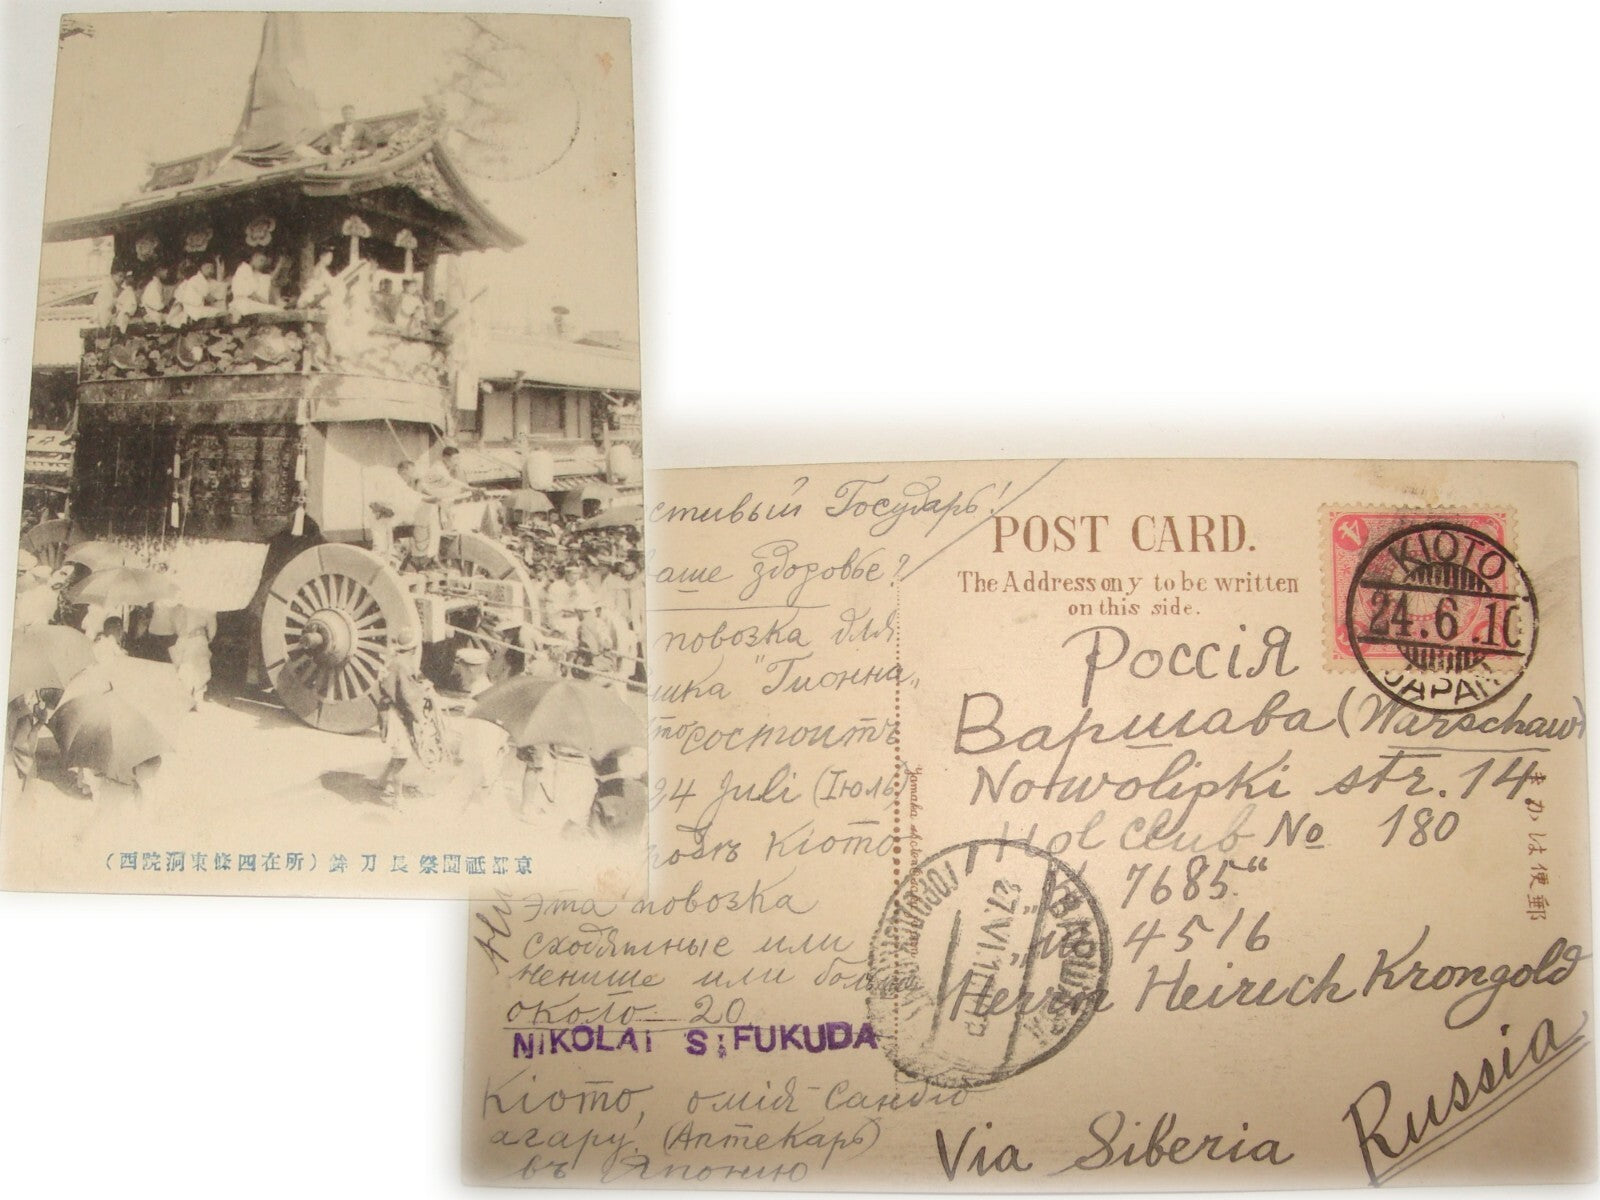 京都祇園祭長刀鉾(所在四條東洞院西)
стивый Государь!
аше здоровье?
повозка для
шка "Гионна„
состоитъ
24 Juli (Іюль
Кіото
Эта повозка
сходятные или
или
около 20
NIKOLAI S. FUKUDA
Кіото, омія Сандіо
агару, (Аптекарь)
въ Японію
POST CARD.
The Address on y to be written
on this side.
KIOTO
24.6.10
JAPAN
Россія
Варшава (Warschaw)
Nowolipki str. 14
Hol Club No 180
„ 7685."
„ 4516
Herrn Heirich Krongold
Via Siberia
Russia
きかは便郵
ВАРШАВА
27.VI.10